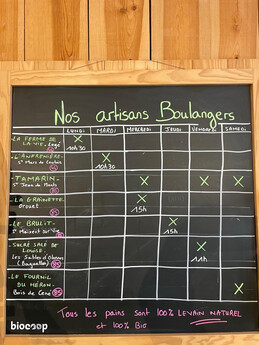 Nos artisans Boulangers
LUNDI MARDI MERCREDI JEUDI VENDREDI SAMEDI
-LA FERME DE
LA VIE - Legé
X
10h30
X
10h30
-TAMARIN-
St Jean de Monts
X X X
-LA GRAINETTE-
Orouet
X
15h
-LE BRULIT-
X
15h
-SUCRÉ SALÉ DE
LOUISE-
Les Sables d'Olonne
(Baguettes)
X
11h
-LE FOURNIL
DU MÉRON-
Bois de Cené
X
Tous les pains sont 100% LEVAIN NATUREL
et 100% Bio
biocoop